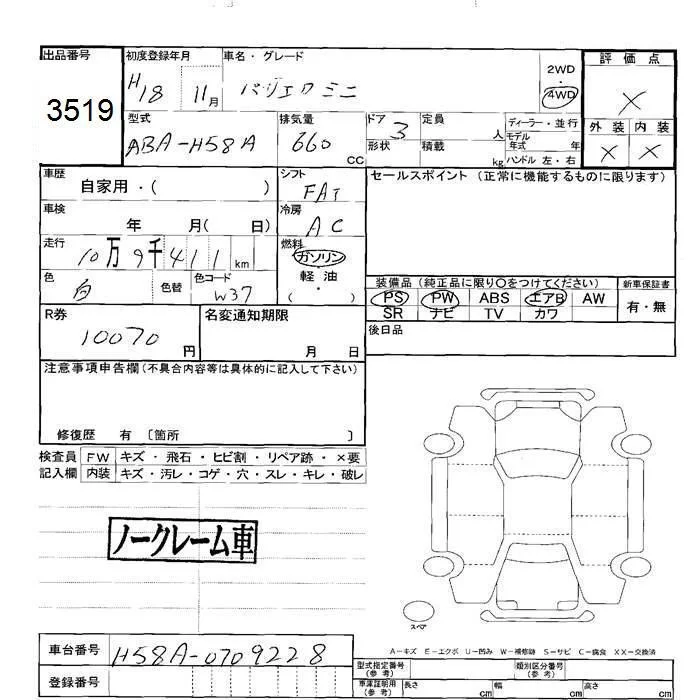 出品番号 初度登録年月 車名・グレード 2WD 評価点
3519 H18 11月 パジェロミニ ・
4WD ×
型式 排気量 ドア 3 定員 人 ディーラー・並行 外装 内装
ABA-H58A 660 CC 形状 積載 kg モデル年式 年 × ×
ハンドル 左・右
車歴 自家用・( ) シフト FAT セールスポイント (正常に機能するものに限ります)
車検 年 月( 日) 冷房 AC
走行 10万9千411km 燃料 ガソリン
色 白 色替 色コード W37 軽油 ( ・ )
装備品 (純正品に限り〇をつけてください) 新車保証書
PS PW ABS エアB AW 有・無
SR ナビ TV カワ
R券 10070 円 名変通知期限 月 日 後日品
注意事項申告欄 (不具合内容等は具体的に記入して下さい)
修復歴 有 〔箇所 〕
検査員 FW キズ・飛石・ヒビ割・リペア跡・×要
記入欄 内装 キズ・汚レ・コゲ・穴・スレ・キレ・破レ
ノークレーム車
スペア
A-キズ E-エクボ U-凹み W-補修跡 S-サビ C-腐食 XX-交換済
車台番号 H58A-0709228
登録番号
型式指定番号(参考) 類別区分番号(参考)
車庫証明用(参考) 長さ cm 幅 cm 高さ cm